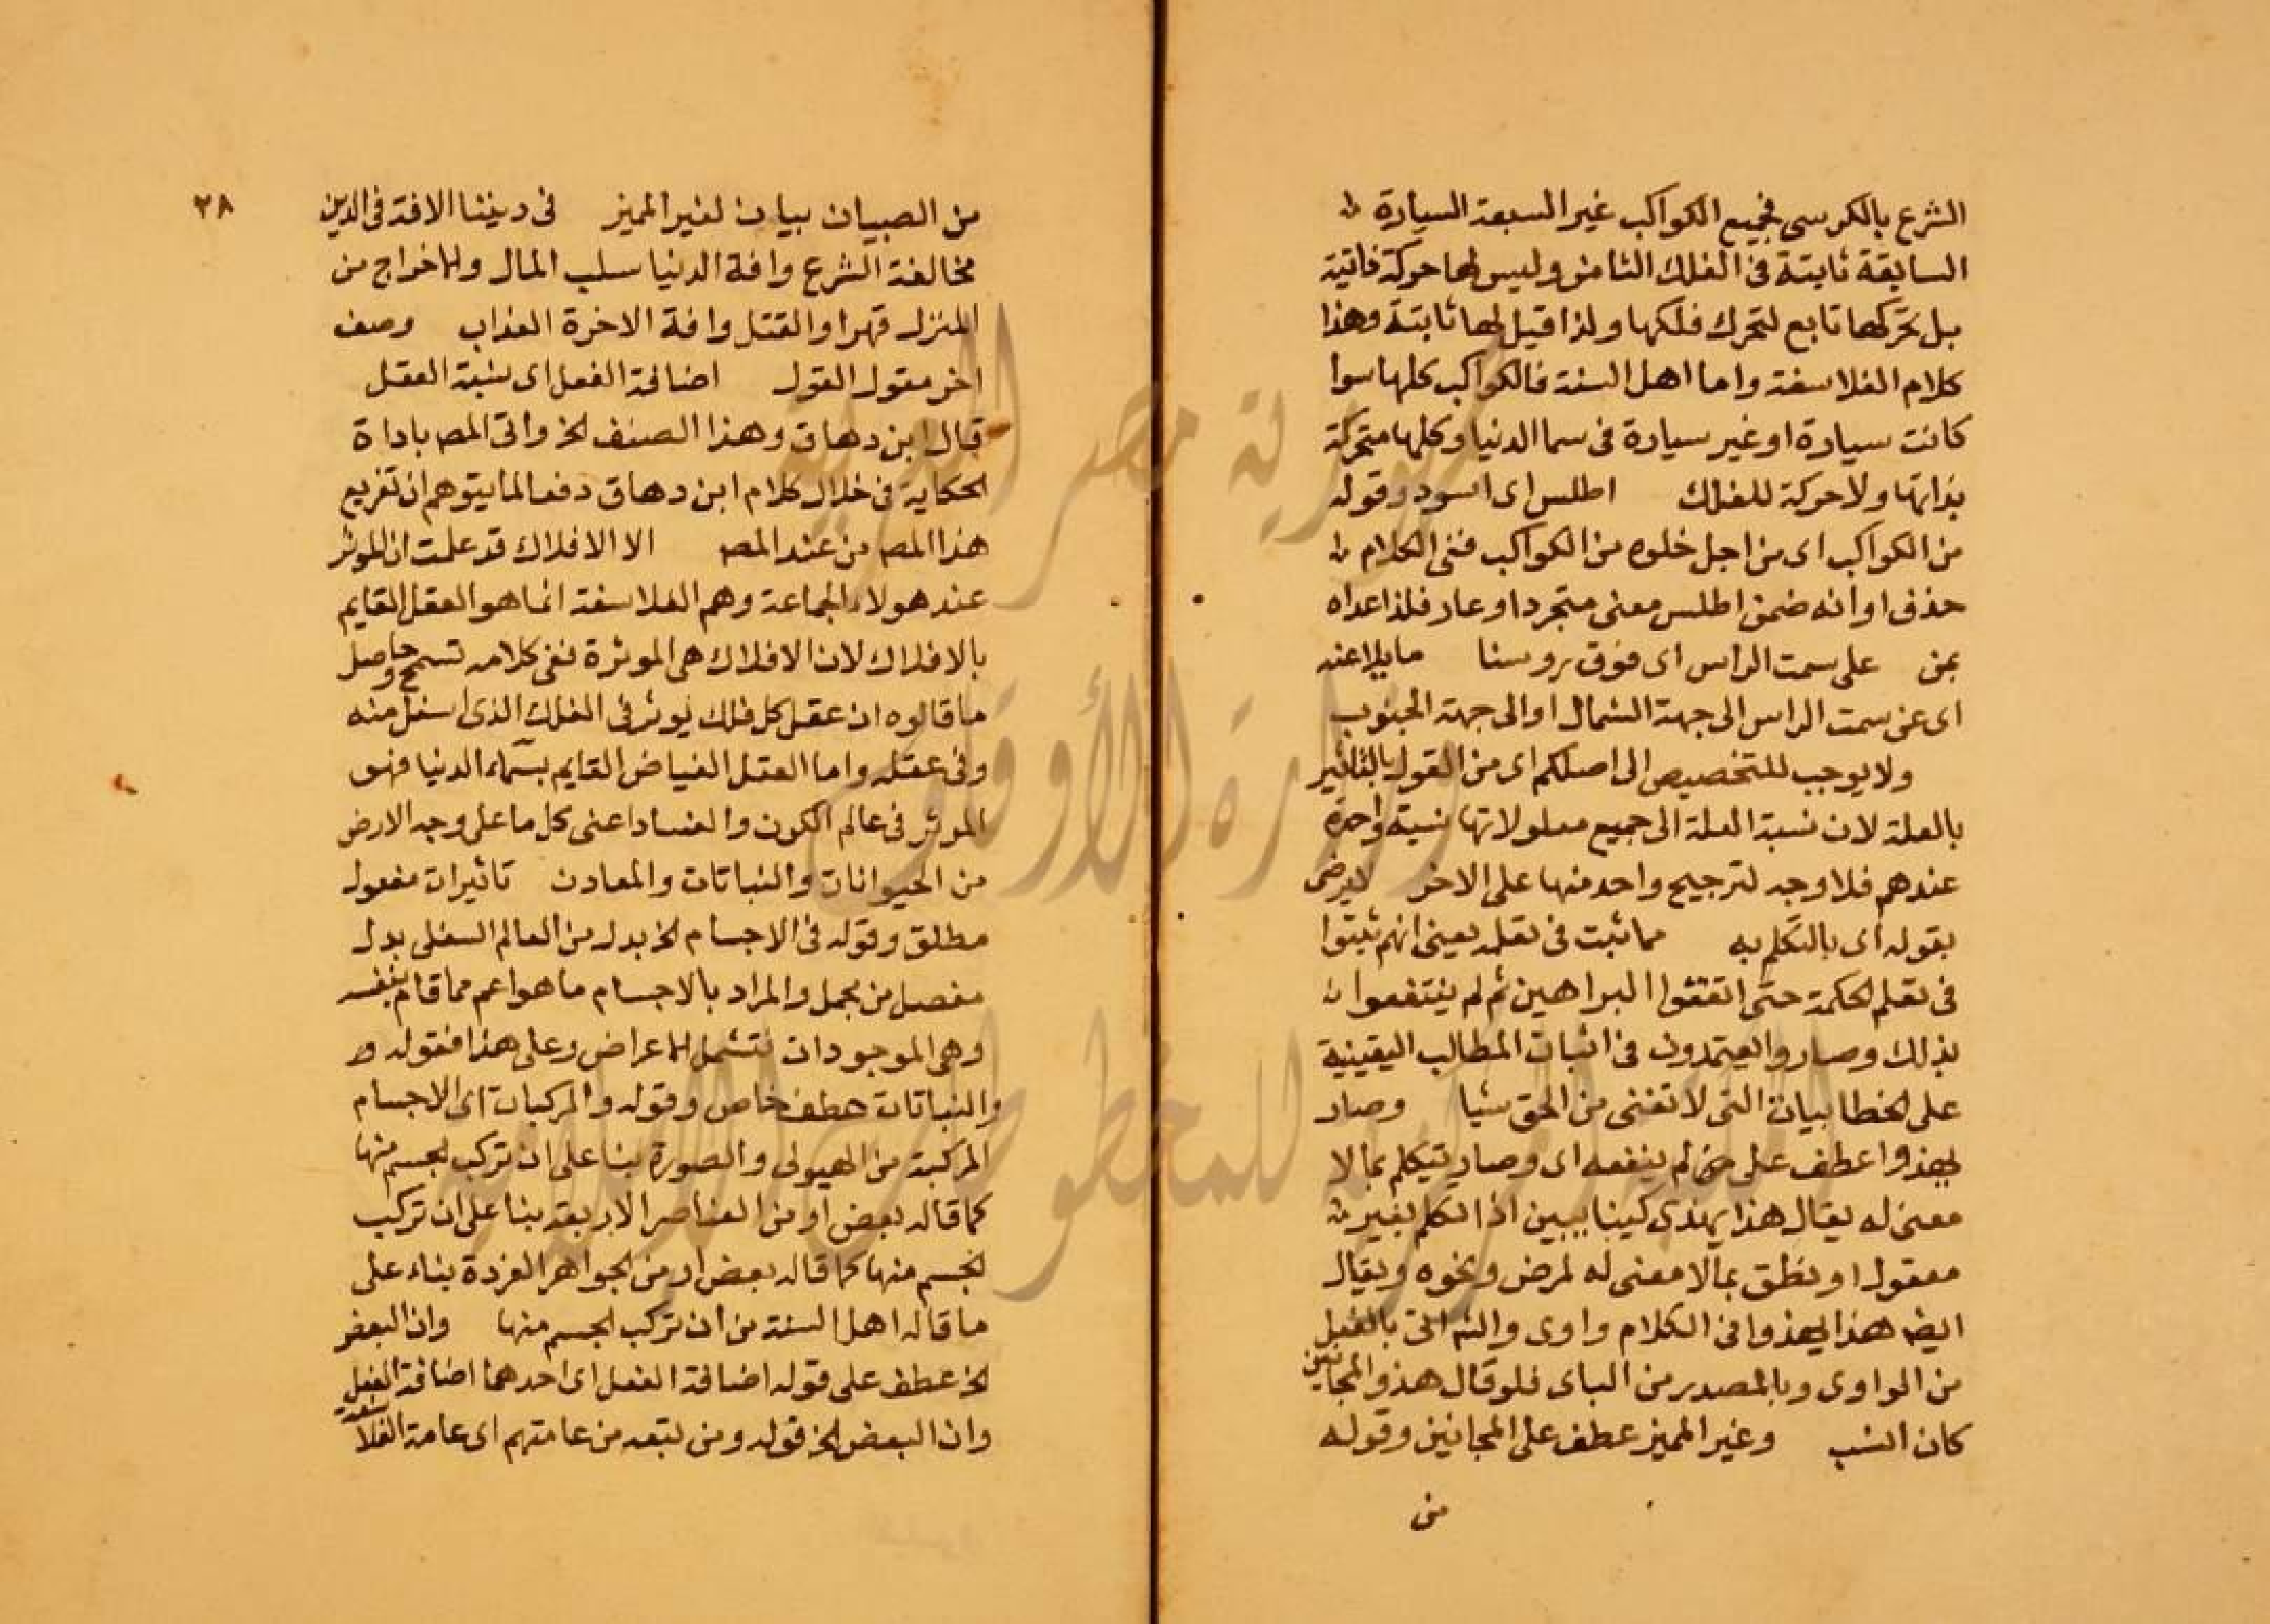 الشرع بالكرسي فجميع الكواكب غير السبعة السيارة
السابقة ثابتة في الفلك الثامن وليس لها حركة ذاتية
بل تحركها تابع لتحرك فلكها ولذا قيل لها ثابتة وهذا
كلام الفلاسفة واما اهل السنة فالكواكب كلها سوا
كانت سيارة او غير سيارة في سما الدنيا وكلها متحركة
بذاتها ولا حركة للفلك اطلس اي اسود وقوله
من الكواكب اي من اجل خلوه من الكواكب ففي الكلام
حذف او انه ضمن اطلس معنى متجرد او عار فلذا عداه
بمن على سمت الراس اي فوق روسنا مايلا عنه
اي عن سمت الراس الى جهة الشمال او الى جهة الجنوب
ولا يوجب للتخصيص الى اصلكم اي من القول بالتاثير
بالعلة لان نسبة العلة الى جميع معلولاتها نسبة واحدة
عندهم فلا وجه لترجيح واحد منها على الاخر لا يرضى
بقوله اي بالتكلم به مما ثبت في نقله يعني انهم
في تعلم الحكمة حتى اتقنوا البراهين ثم لم ينتفعوا
بذلك وصاروا يعتمدون في اثبات المطالب اليقينية
على الخطابيات التي لا تغني من الحق شيا وصار
يهذوا عطف على من لم ينفعه اي وصار يتكلم بما لا
معنى له يقال هذا يهذي اذا تكلم بغير
معقول او نطق بما لا معنى له لمرض ونحوه ويقال
ايضه هذا يهذوا في الكلام واوي والشم اتى بالفعل
من الواوي وبالمصدر من الياي فلو قال هذو المجانين
كان انسب وغير المميز عطف على المجانين وقوله
من
٢٨
من الصبيان بيان لغير المميز في ديننا الافة في الدين
مخالفة الشرع وافة الدنيا سلب المال والاخراج من
المنزل قهرا والقتل وافة الاخرة العذاب وصنف
اخر مقول القول اضافة الفعل اي نسبة العقل
قال ابن دهاق وهذا الصنف الخ واتى المصه باداة
الحكاية في خلال كلام ابن دهاق دفعا لما يتوهم ان تفريع
هذا المصه من عند المصه الا الافلاك قد علمت ان الموثر
عند هولاء الجماعة وهم الفلاسفة انما هو العقل القايم
بالافلاك لان الافلاك هي الموثرة ففي كلامه تسمح وحاصل
ما قالوه ان عقل كل فلك يوثر في الفلك الذي اسفل منه
وفي عقله واما العقل الفياض القايم بسماء الدنيا فهو
الموثر في عالم الكون والفساد اعني كل ما على وجه الارض
من الحيوانات والنباتات والمعادن تاثيرات مفعول
مطلق وقوله في الاجسام الخ بدل من العالم السفلي بدل
مفصل من مجمل والمراد بالاجسام ما هو اعم مما قام بنفسه
وهي الموجودات فتشمل الاعراض وعلى هذا فقوله
والنباتات عطف خاص وقوله والمركبات اي الاجسام
المركبة من الهيولى والصورة بنا على ان تركب الجسم منها
كما قاله بعض او من العناصر الاربعة بنا على ان تركيب
الجسم منها كما قاله بعض او من الجواهر الفردة بناء على
ما قاله اهل السنة من ان تركب الجسم منها وان البعض
الخ عطف على قوله اضافة الفعل اي احدهما اضافة الفعل
وان البعض الخ قوله ومن تبعه من عامتهم اي عامة الفلاسفة
جمهورية مصر العربية
وزارة الأوقاف
المكتبة المركزية للمخطوطات الإسلامية